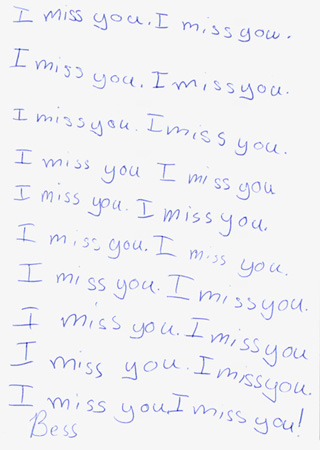 I miss you. I miss you.
I miss you. I miss you.
I miss you. I miss you.
I miss you I miss you
I miss you. I miss you.
I miss you. I miss you.
I miss you. I miss you.
I miss you. I miss you
I miss you. I miss you.
I miss you. I miss you!
Bess